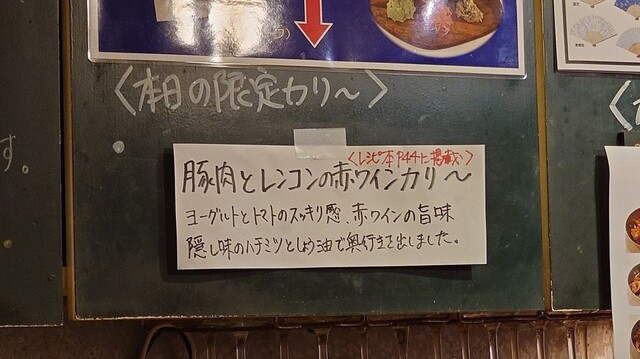 〈本日の限定カリ〜〉
〈レシピ本P44に掲載〉
豚肉とレンコンの赤ワインカリ〜
ヨーグルトとトマトのスッキリ感、赤ワインの旨味
隠し味のハチミツとしょう油で奥行きを出しました。
す。